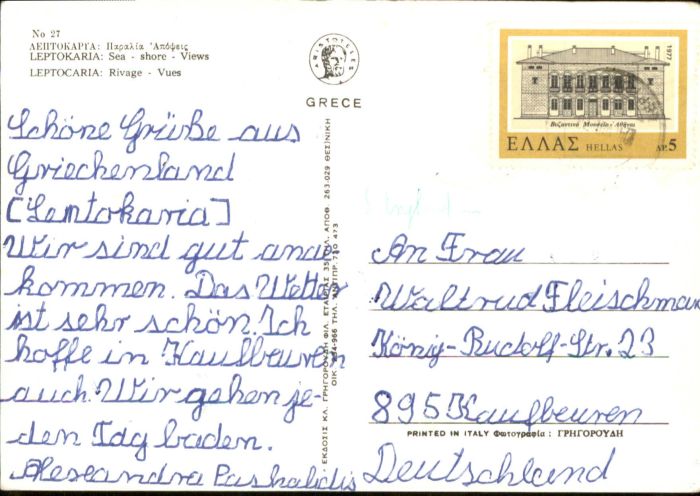 No 27
ΛΕΠΤΟΚΑΡΓΑ: Παραλία Ἀπόψεις
LEPTOKARIA: Sea - shore - Views
LEPTOCARIA: Rivage - Vues
ARISTOTELES
GRECE
1977
Βυζαντινό Μουσεῖο - Ἀθῆναι
ΕΛΛΑΣ HELLAS ΔΡ. 5
Schöne Grüße aus
Griechenland
[Lemtokaria]
Wir sind gut ange-
kommen. Das Wetter
ist sehr schön. Ich
hoffe in Kaufbeuren
auch. Wir gehen je-
den Tag baden.
Alexandra Paskalidis
ΕΚΔΟΣΙΣ ΚΛ. ΓΡΗΓΟΡΟΥΔΗ ΦΙΛ. ΕΤΑΙΡΙΑΣ 35 ΤΗΛ. ΑΠΟΘ. 263.029 ΘΕΣ)ΝΙΚΗ
An Frau
Waltrud Fleischmann
König-Rudolf-Str. 23
895 Kaufbeuren
PRINTED IN ITALY Φωτογραφία : ΓΡΗΓΟΡΟΥΔΗ
Deutschland